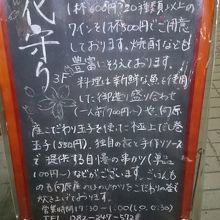 花守り
3F
1杯600円?20種類以上の
ワインも1杯500円でご用意
しております。焼酎なども
豊富にそろえております。
料理は新鮮な魚を使用
した御造り盛り合わせ
一人前700円〜)や、何原
産こだわり玉子を使った極上だし巻
玉子(550円)、独自の技と手作りソース
で提供する自慢の串かつ(単品
100円〜)などがございます。ごはんもの
も何原産の
営業時間17:30〜1:00(
TEL 082-247-5928